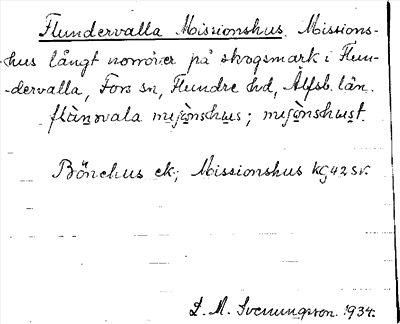 Flundervalla Missionshus. Missions-
hus långt norröver på skogsmark i Flun-
-dervalla, Fors sn, Flundre hd, Älfsb. län.
flànovala misjònshus; misjònshust.
Bönehus ek; Missionshus kg 42 sv.
L. M. Svenungsson. 1934.